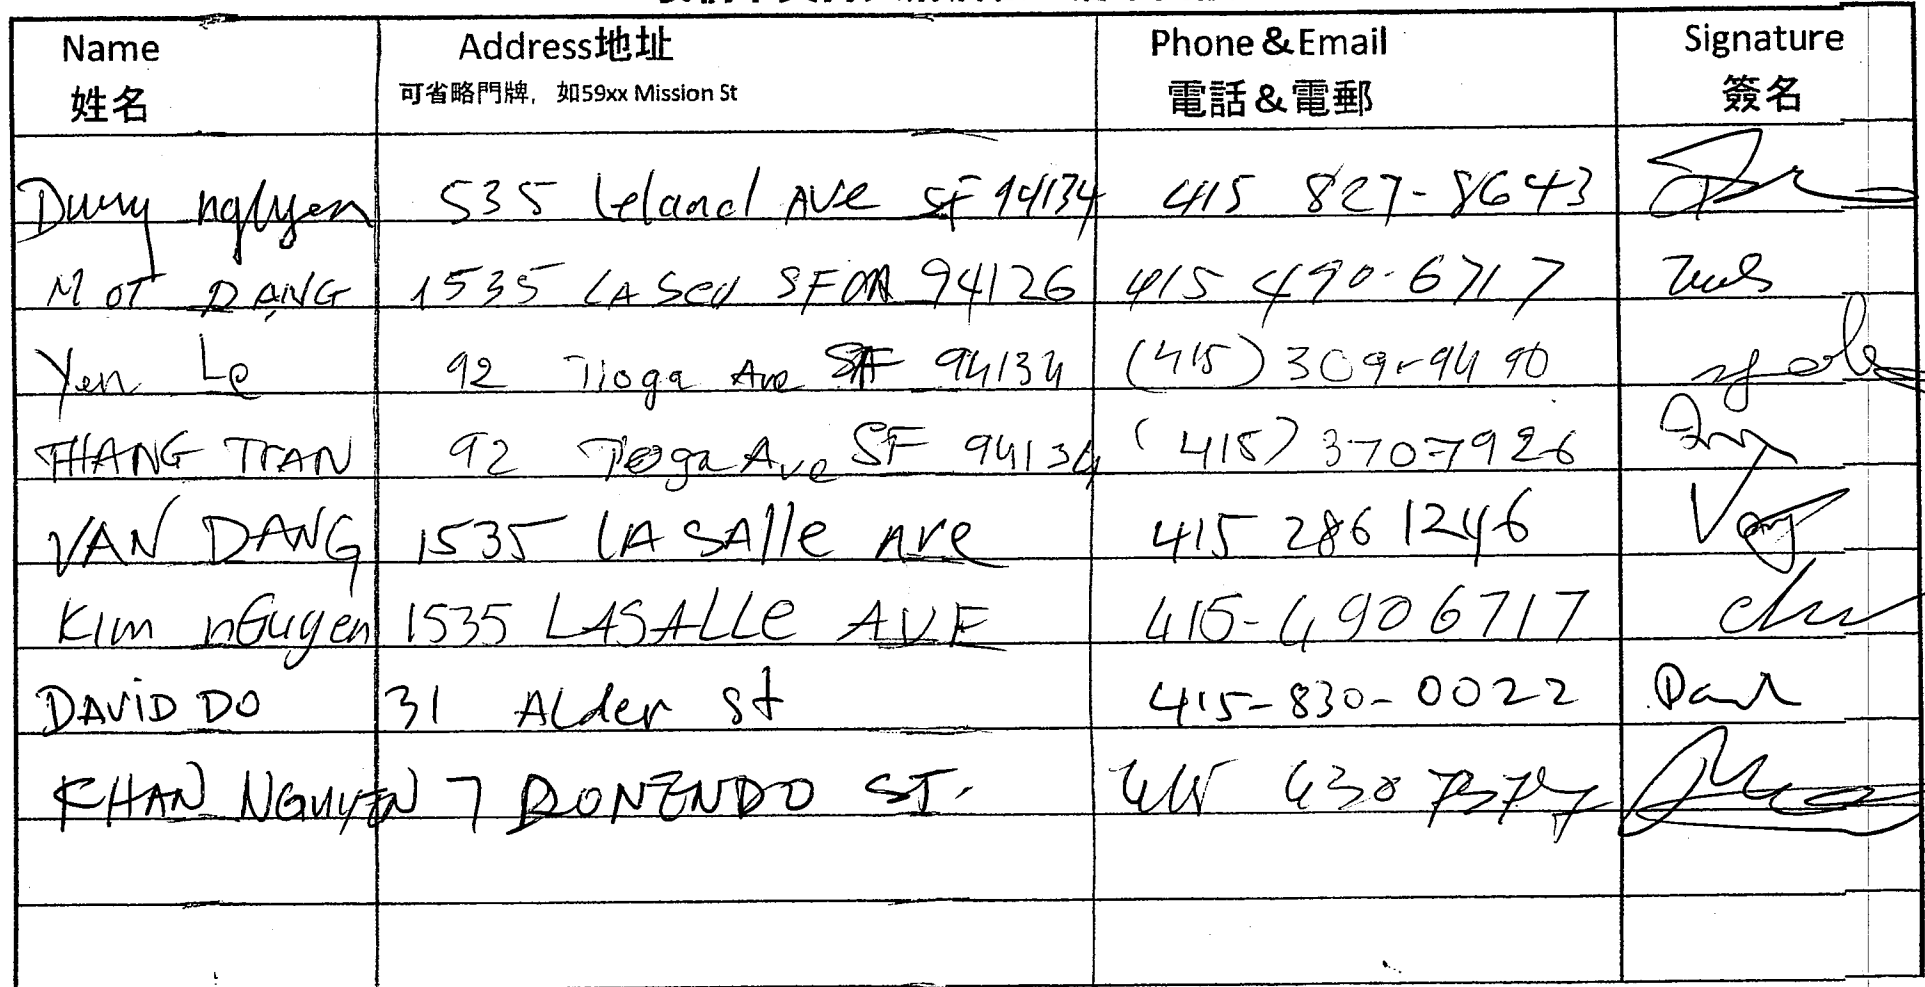 Name Address地址 Phone&Email Signature
姓名 可省略門牌, 如59xx Mission St 電話&電郵 簽名
nguyen 535 Leland Ave SF 94134 415 827-8643
MOT DANG 1535 LA SF 94126 415 490-6717
Yen Le 92 Tioga Ave SF 94134 (415) 309-9490
THANG TRAN 92 Tioga Ave SF 94134 (415) 370-7926
VAN DANG 1535 LA SAlle Ave 415 286 1246
Kim nGuyen 1535 LASALLe AVE 415-490 6717
DAViD DO 31 ALder st 415-830-0022
KHAN NGUYEN 7 ST. 415